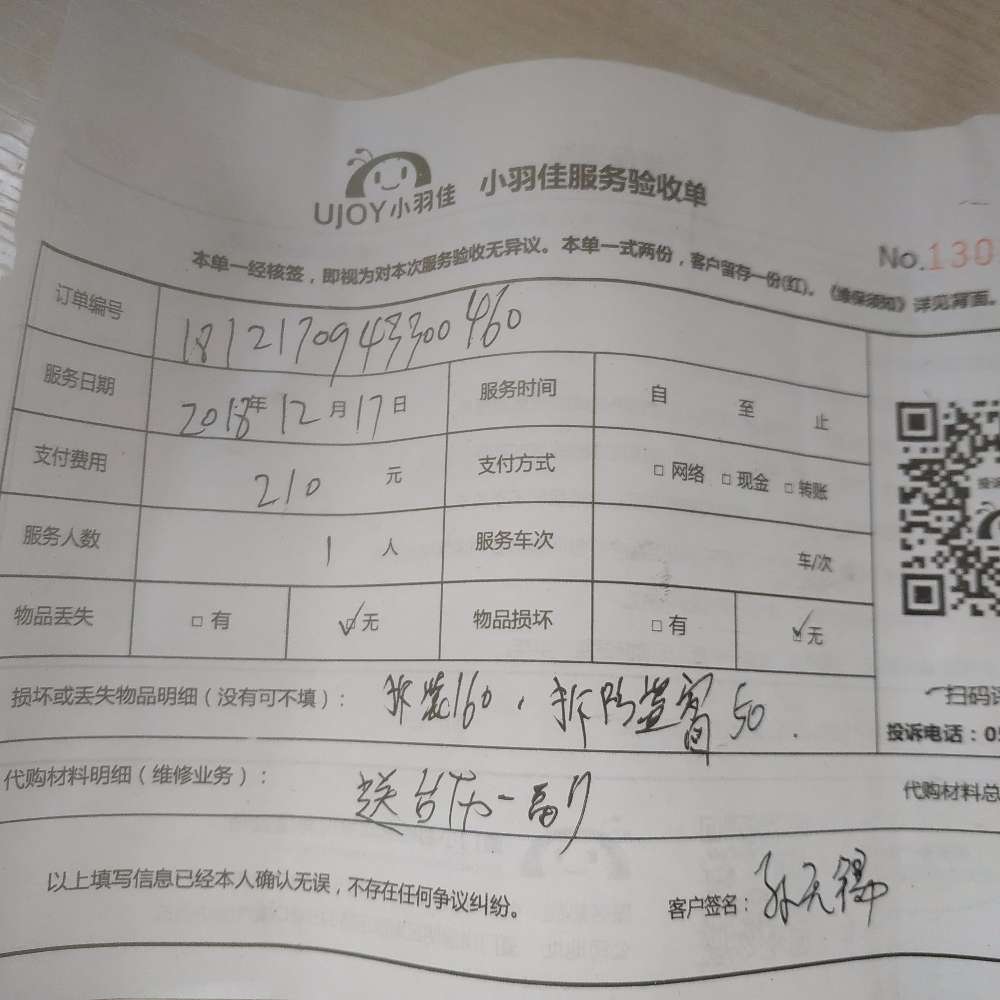 UJOY小羽佳 小羽佳服务验收单
No.130
本单一经核签，即视为对本次服务验收无异议。本单一式两份，客户留存一份(红)。《维保须知》详见背面。
订单编号 18121709433300460
服务日期 2018年12月17日 服务时间 自 至 止
支付费用 210 元 支付方式 □ 网络 □ 现金 □ 转账
服务人数 1 人 服务车次 车/次
物品丢失 □ 有 ☑ 无 物品损坏 □ 有 ☑ 无
扫码
投诉电话：05
损坏或丢失物品明细（没有可不填）： 拆装160，拆防盗窗50.
代购材料明细（维修业务）： 送 一副
代购材料总
以上填写信息已经本人确认无误，不存在任何争议纠纷。 客户签名：